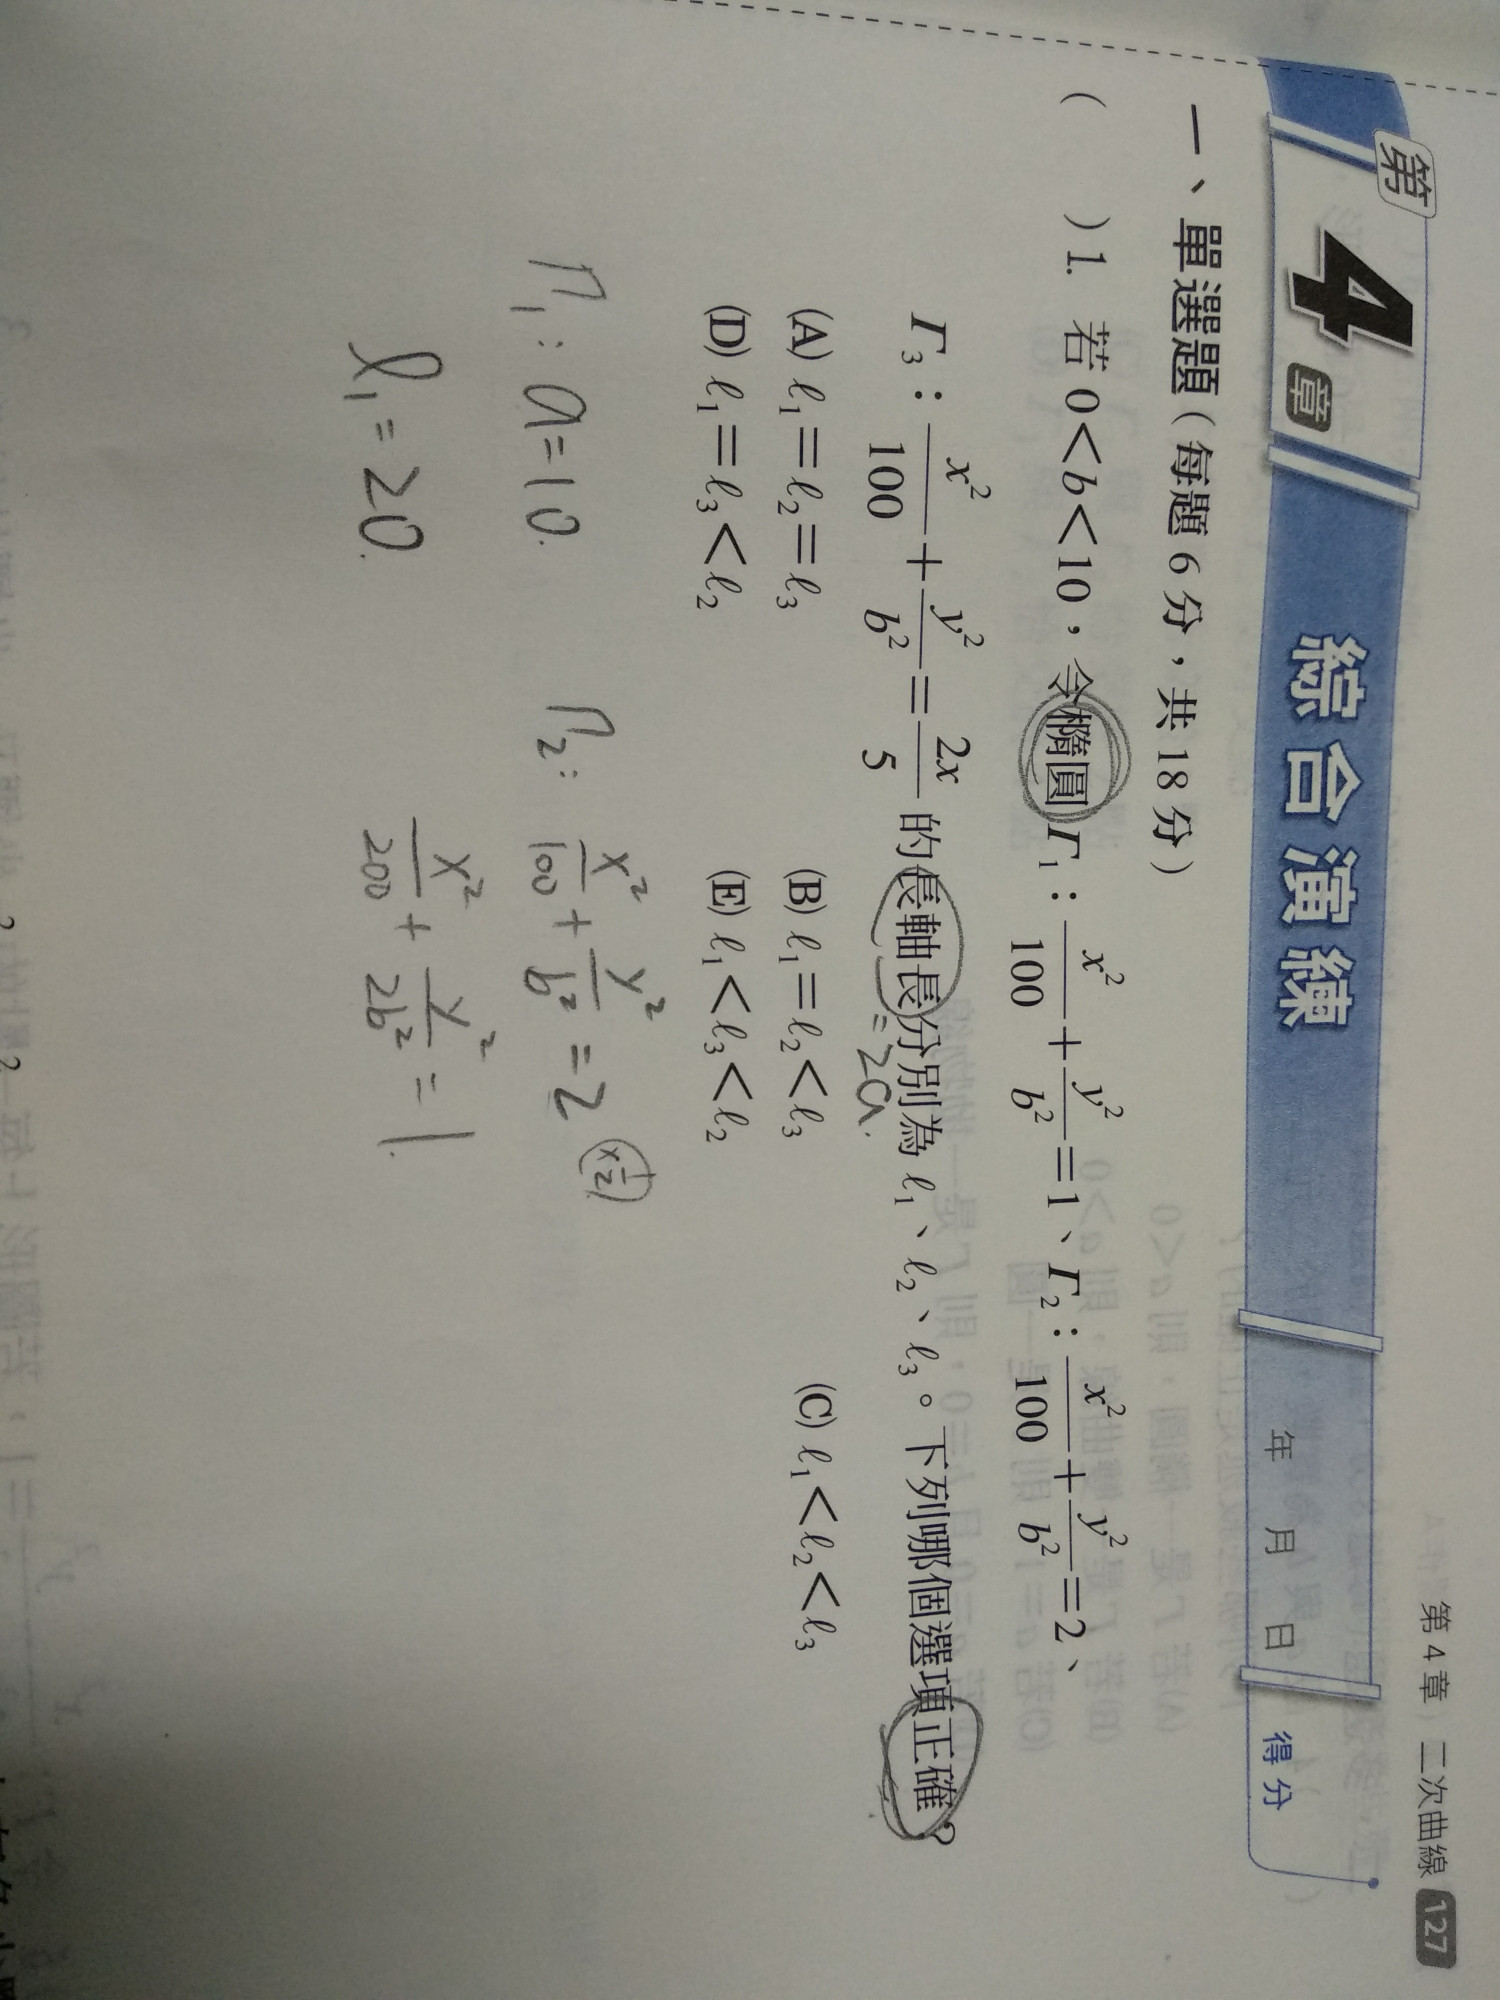 第4章 二次曲線 127
第4章 綜合演練 年 月 日 得分
一、單選題(每題6分,共18分)
( )1. 若0<b<10,令橢圓Γ₁:x²/100+y²/b²=1、Γ₂:x²/100+y²/b²=2、
Γ₃:x²/100+y²/b²=2x/5的長軸長分別為ℓ₁、ℓ₂、ℓ₃。下列哪個選項正確?
=2a.
(A) ℓ₁=ℓ₂=ℓ₃ (B) ℓ₁=ℓ₂<ℓ₃ (C) ℓ₁<ℓ₂<ℓ₃
(D) ℓ₁=ℓ₃<ℓ₂ (E) ℓ₁<ℓ₃<ℓ₂
Γ₁: a=10. Γ₂: x²/100+y²/b²=2 (×1/2)
ℓ₁=20. x²/200+y²/2b²=1.